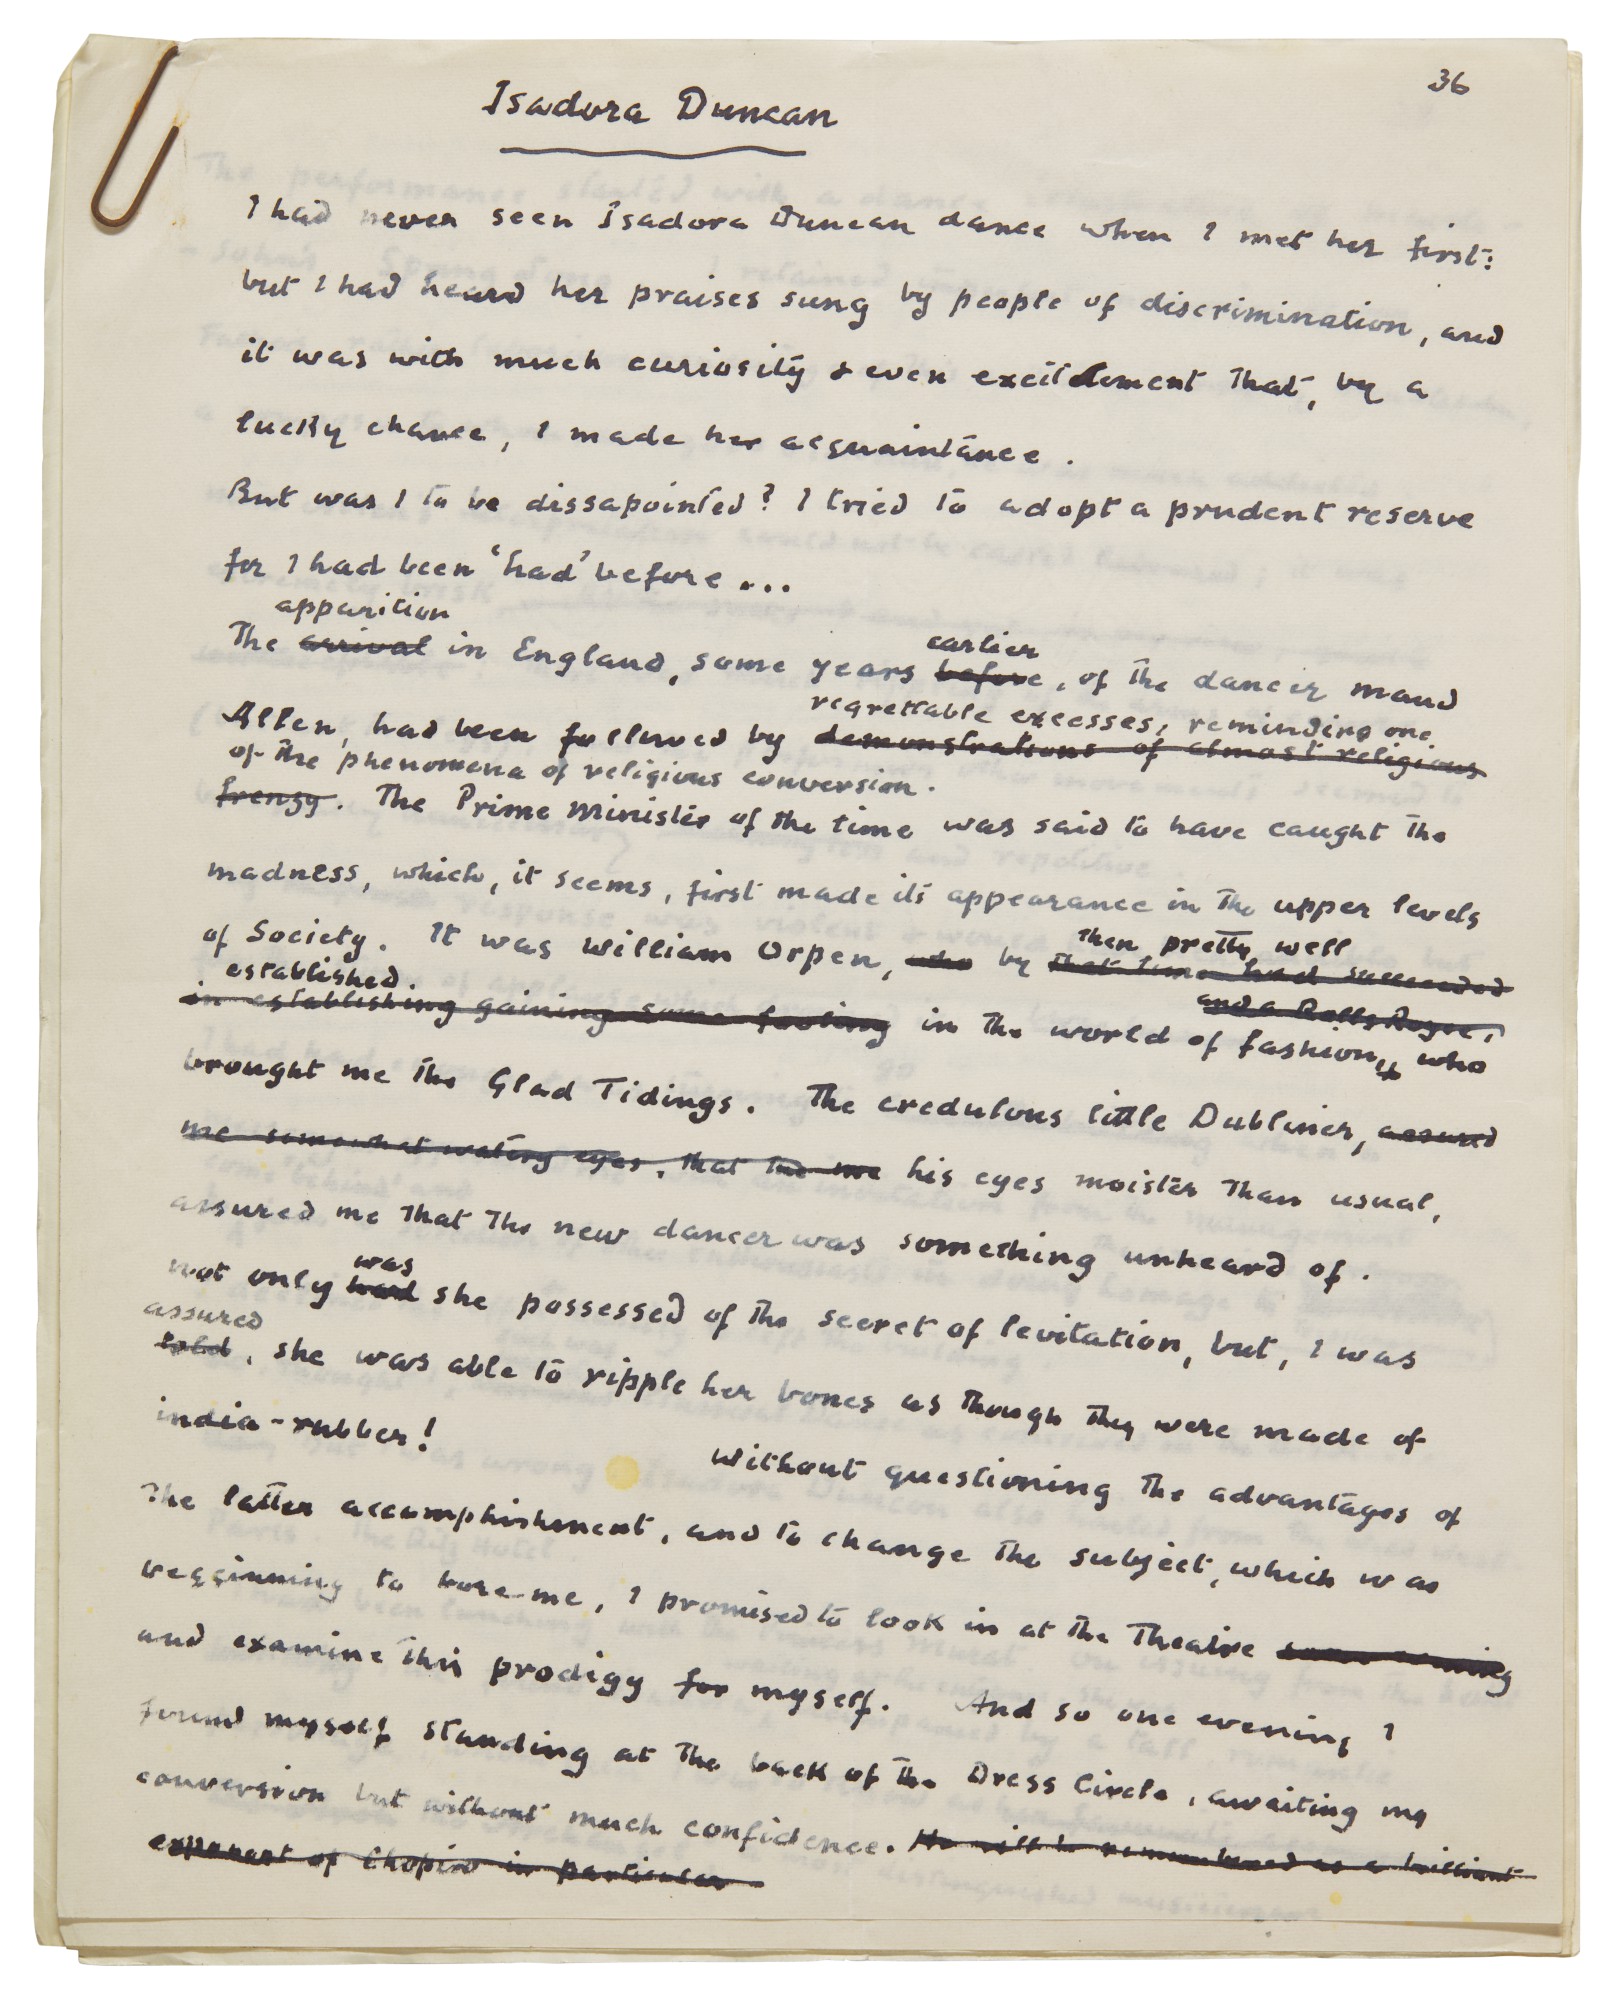 36
Isadora Duncan
I had never seen Isadora Duncan dance when I met her first:
but I had heard her praises sung by people of discrimination, and
it was with much curiosity & even excitement that, by a
lucky chance, I made her acquaintance.
But was I to be dissapointed? I tried to adopt a prudent reserve
for I had been 'had' before...
apparition
The arrival in England, some years before, of the dancer Maud
earlier
regrettable excesses, reminding one
Allen, had been followed by demonstrations of almost religious
of the phenomena of religious conversion.
frenzy. The Prime Minister of the time was said to have caught the
madness, which, it seems, first made its appearance in the upper levels
then pretty well
of Society. It was William Orpen, who by that time had succeeded
established.
and a Rolls Royce,
in establishing gaining some footing in the world of fashion, who
brought me the Glad Tidings. The credulous little Dubliner, assured
me somewhat watery eyes, that he his eyes moister than usual,
assured me that the new dancer was something unheard of.
was
not only had she possessed of the secret of levitation, but, I was
assured
told, she was able to ripple her bones as though they were made of
india-rubber!
without questioning the advantages of
the latter accomplishment, and to change the subject, which was
begginning to bore me, I promised to look in at the Theatre some evening
and examine this prodigy for myself. And so one evening I
found myself standing at the back of the Dress Circle, awaiting my
conversion but without much confidence. He will be remembered as a brilliant
exponent of Chopin in particular